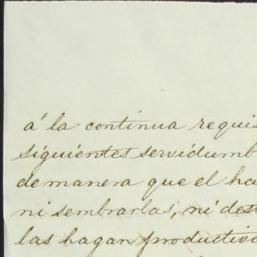 á la continua requis
siguientes servidumb
de manera que el ha
ni sembrarlas, ni dest
las hagan productiva